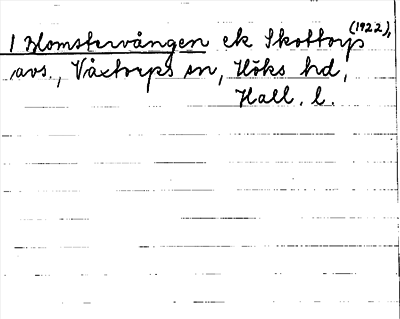 1 Blomstervången ek Skottorp (1922),
avs., Våxtorps sn, Höks hd,
Hall. l.